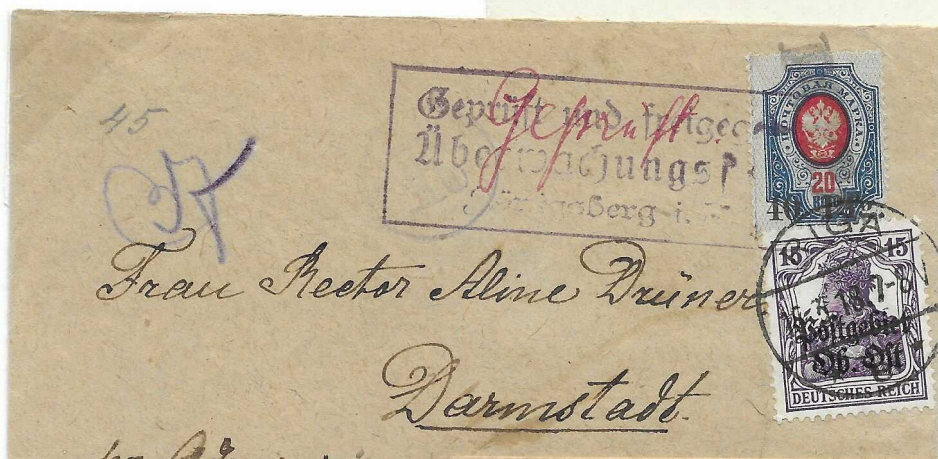 45
Geprüft und freigege
Überwachungs
Königsberg i.
Geprüft
ПОЧТОВАЯ МАРКА
20
40 Pf.
RIGA
15 15
18.
Postgebiet
Ob. Ost
DEUTSCHES REICH
Frau Rector Aline Drüner
Darmstadt.